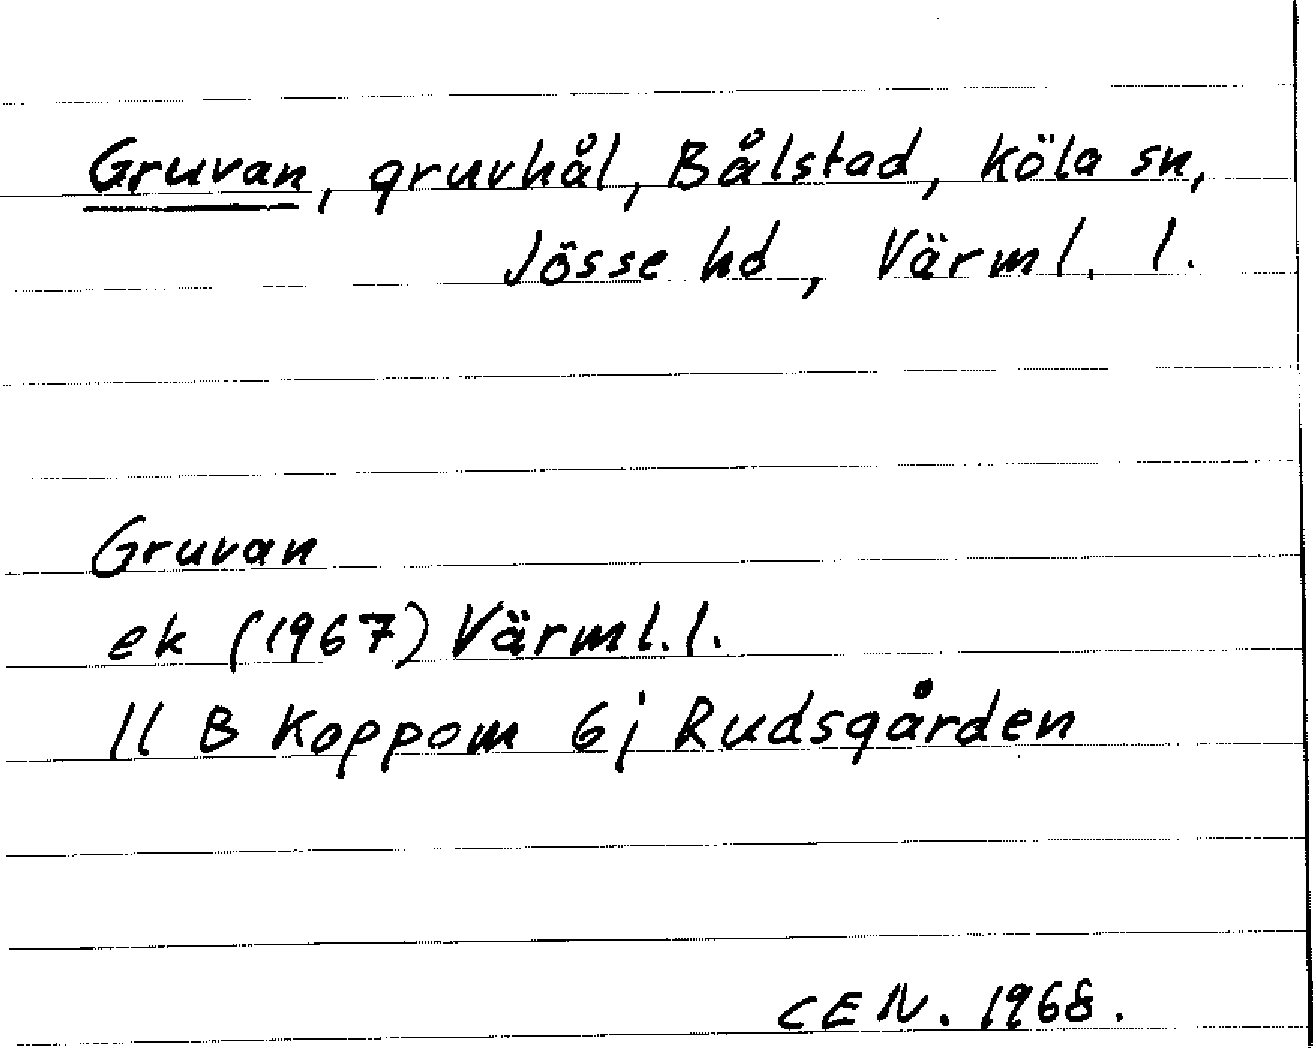 Gruvan, gruvhål, Bålstad, Köla sn,
Jösse hd, Värml. l.
Gruvan
ek (1967) Värml. l.
11 B Koppom 6j Rudsgården
CEN. 1968.